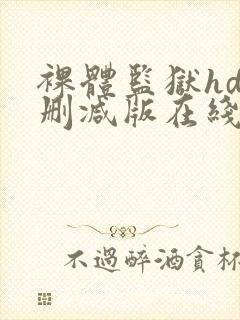 裸體監獄hd
刪減版在綫
不過醉酒貪杯